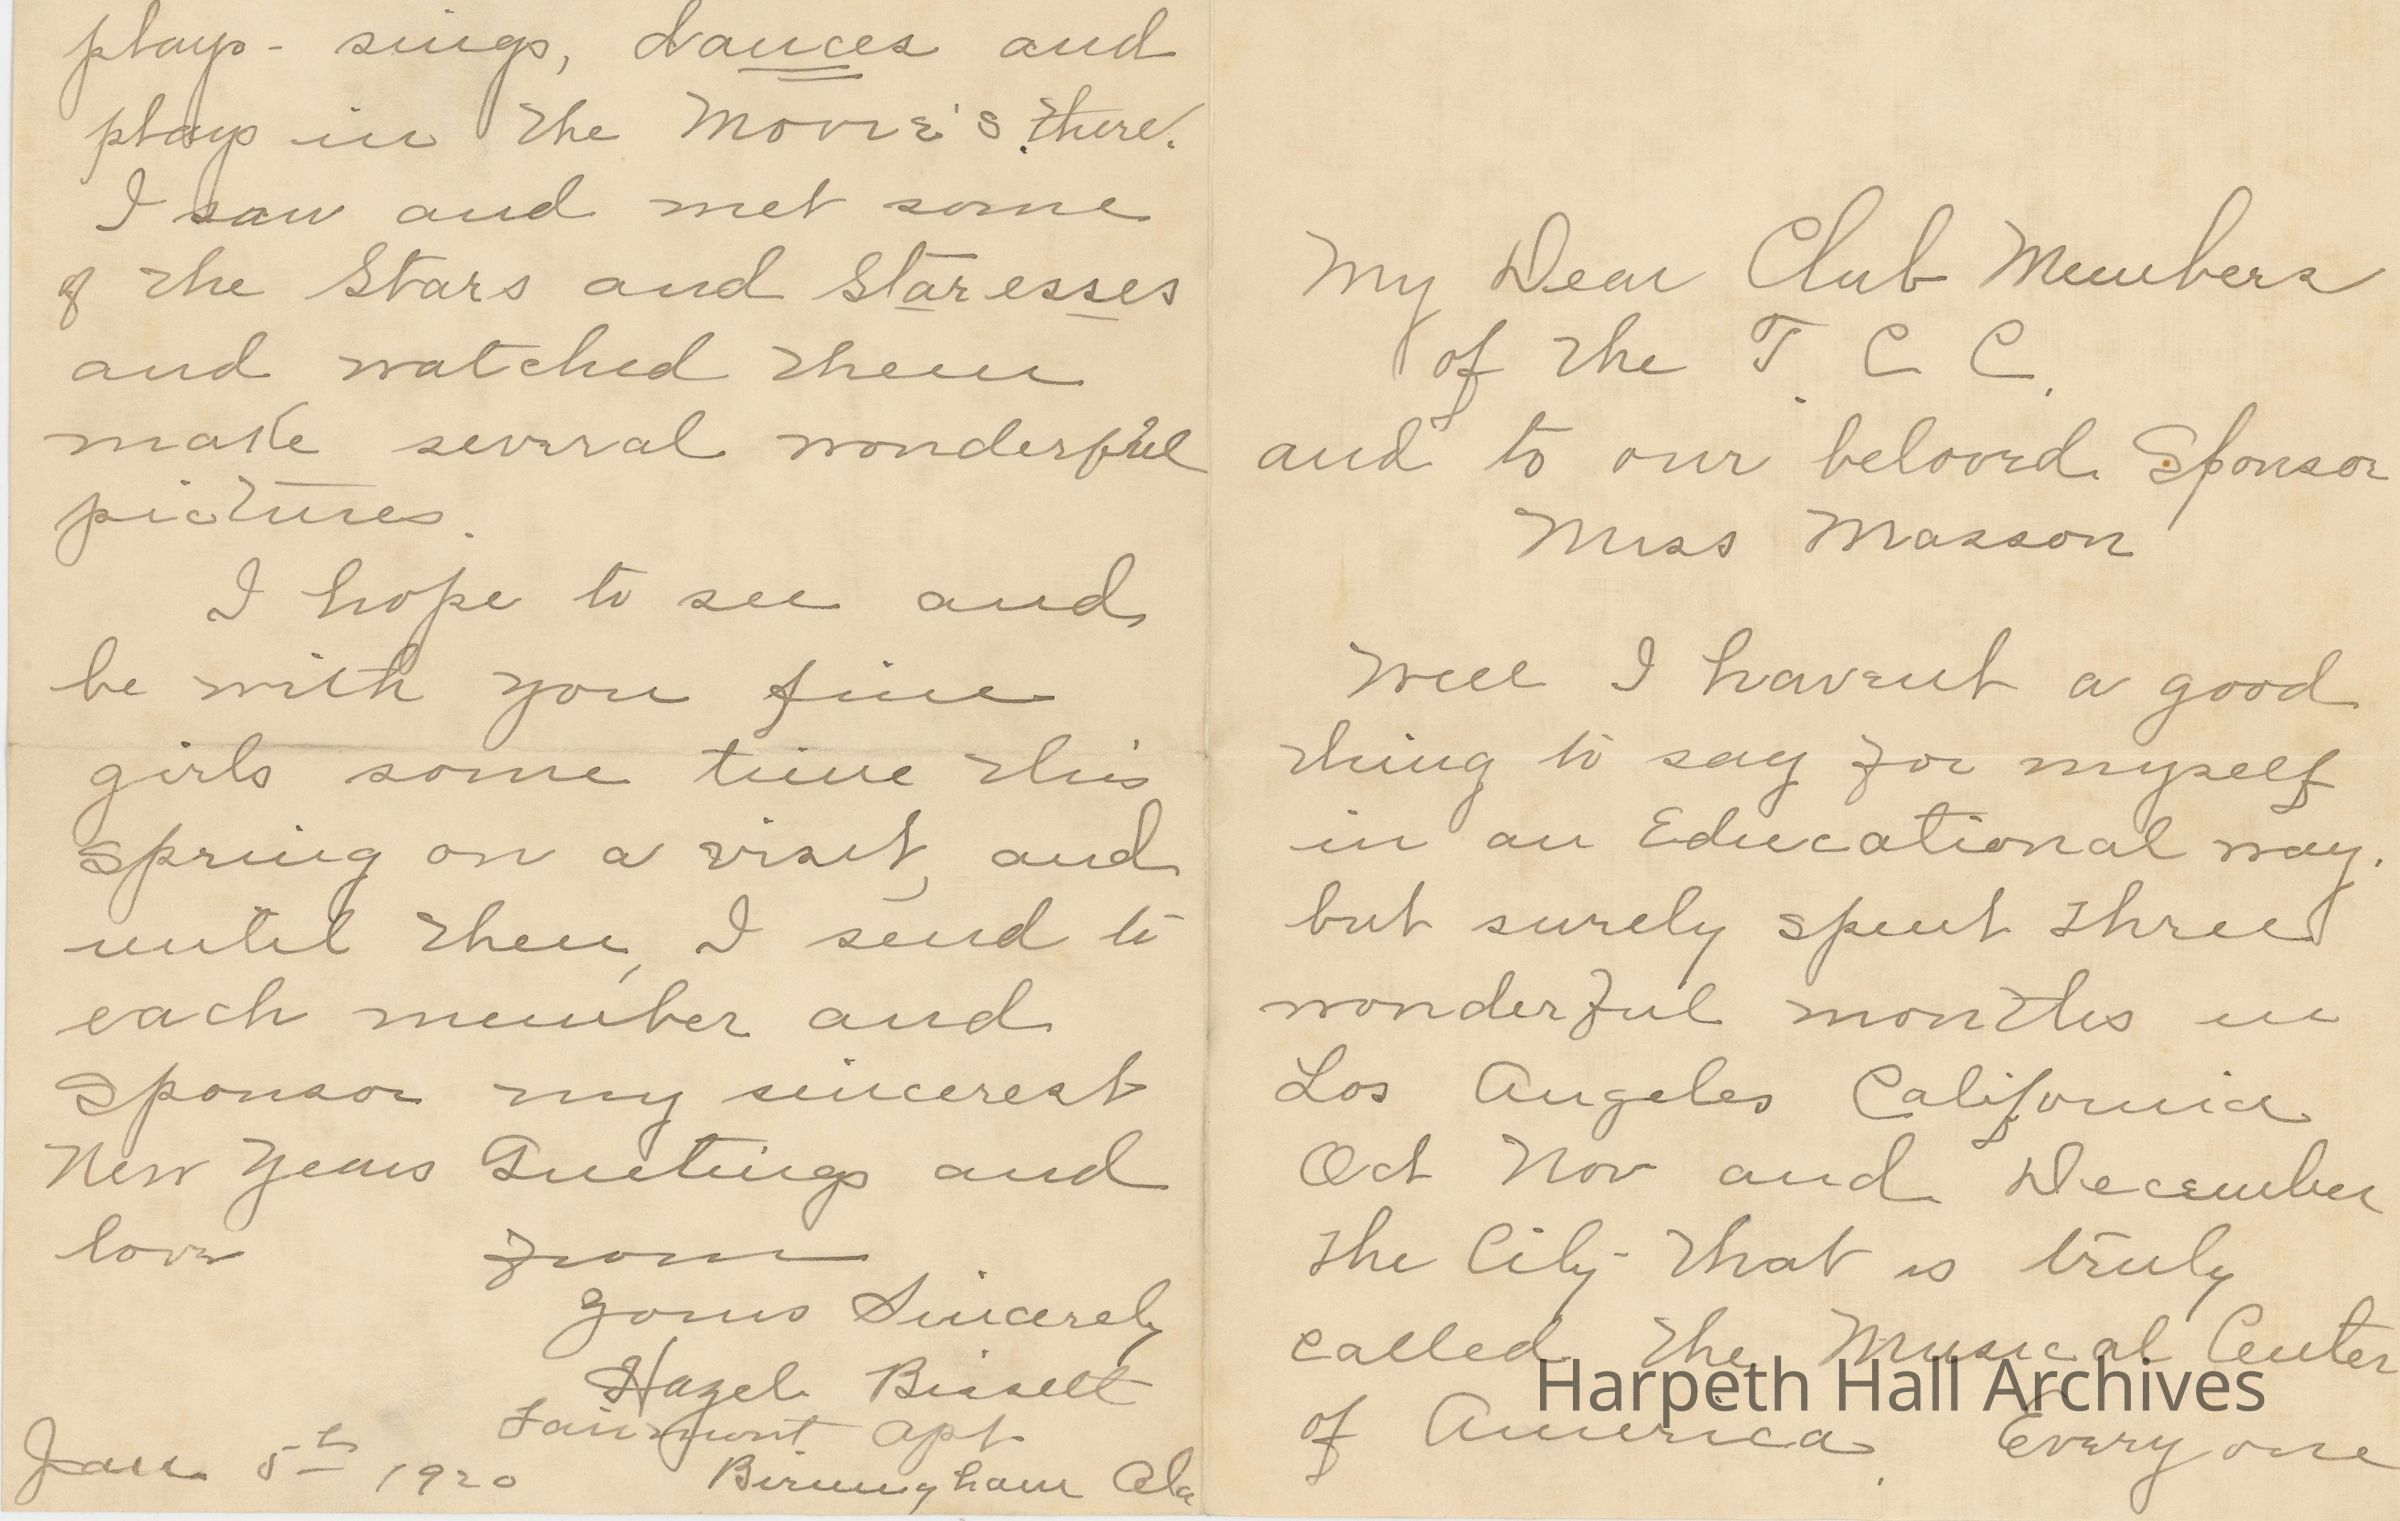 My Dear Club Members
of the T. C C.
and to our beloved Sponsor
Miss Masson
Well I havent a good
thing to say for myself
in an Educational way.
but surely spent three
wonderful months in
Los Angeles California
Oct Nov and December
the City - that is truly
called the Musical Center
of America. Every one
plays - sings, dances and
plays in the Movie's there.
I saw and met some
of the Stars and Staresses
and watched them
make several wonderful
pictures.
I hope to see and
be with you fine
girls some time this
spring on a visit, and
until then, I send to
each member and
Sponsor my sincerest
New Years Greetings and
love from
Yours Sincerely
Hazel Bissett
Fairmont Apt
Birmingham Ala
Jan 5th 1920
Harpeth Hall Archives